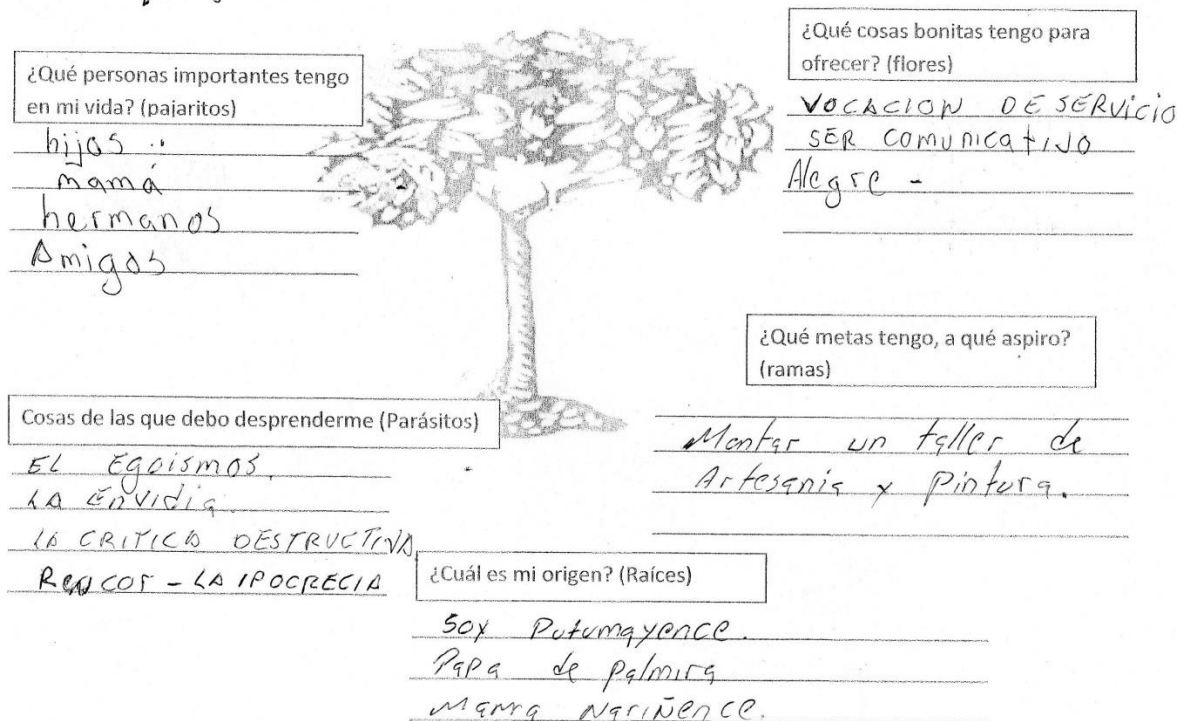 ¿Qué personas importantes tengo
en mi vida? (pajaritos)
hijos
mamá
hermanos
Amigos
¿Qué cosas bonitas tengo para
ofrecer? (flores)
VOCACION DE SERVICIO
SER COMUNICATIVO
Alegre -
¿Qué metas tengo, a qué aspiro?
(ramas)
Montar un taller de
Artesania y Pintura.
Cosas de las que debo desprenderme (Parásitos)
EL Egoismos.
LA ENVIDIA.
LA CRITICA DESTRUCTIVA
Rencor - LA IPOCRECIA
¿Cuál es mi origen? (Raíces)
Soy Putumayence.
Papa de palmira
Mama Nariñence.